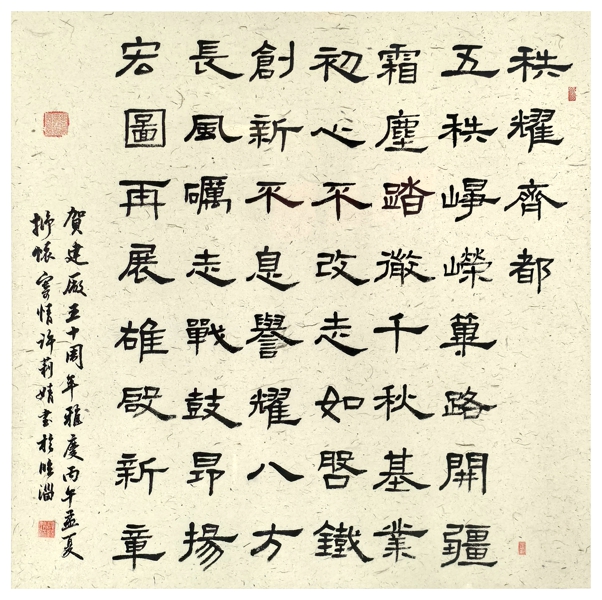 秩耀齊都
五秩崢嶸蓽路開疆
霜塵踏徹千秋基業
初心不改志如磐鐵
創新不息譽耀八方
長風礪志戰鼓昂揚
宏圖再展雄啟新章
賀建廠五十周年雅慶丙午孟夏
抒懷寄情許莉婧書於臨淄